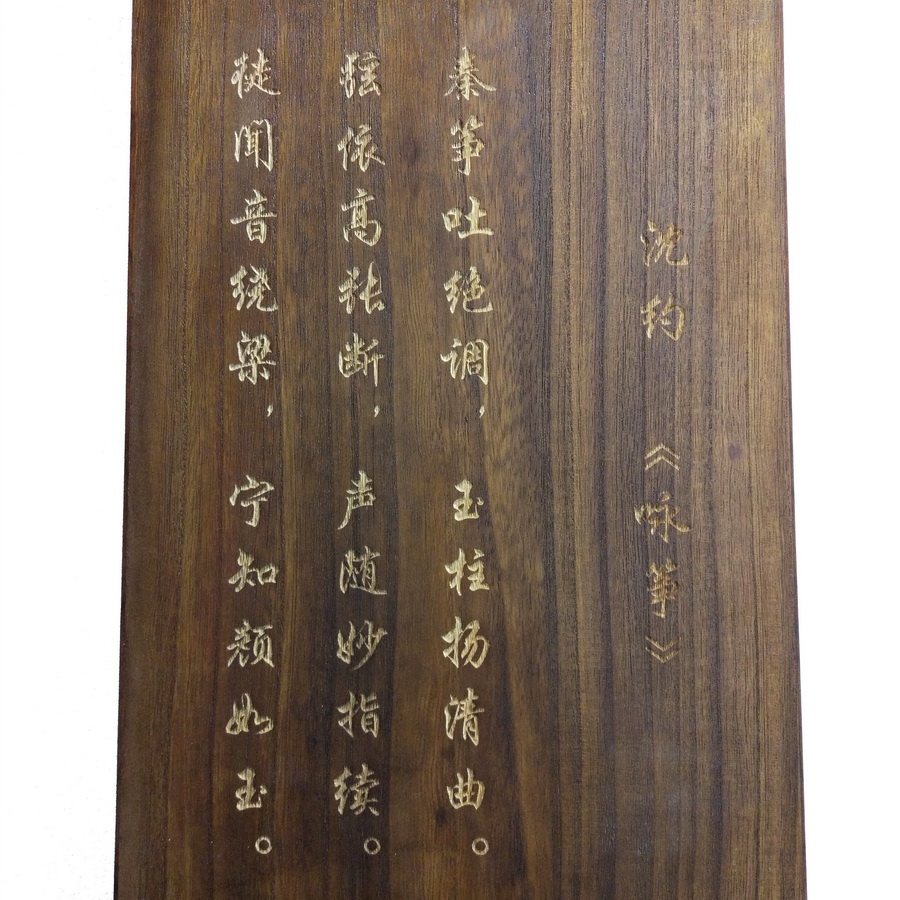 沈约 《咏筝》
秦筝吐绝调，玉柱扬清曲。
弦依高张断，声随妙指续。
徒闻音绕梁，宁知颜如玉。